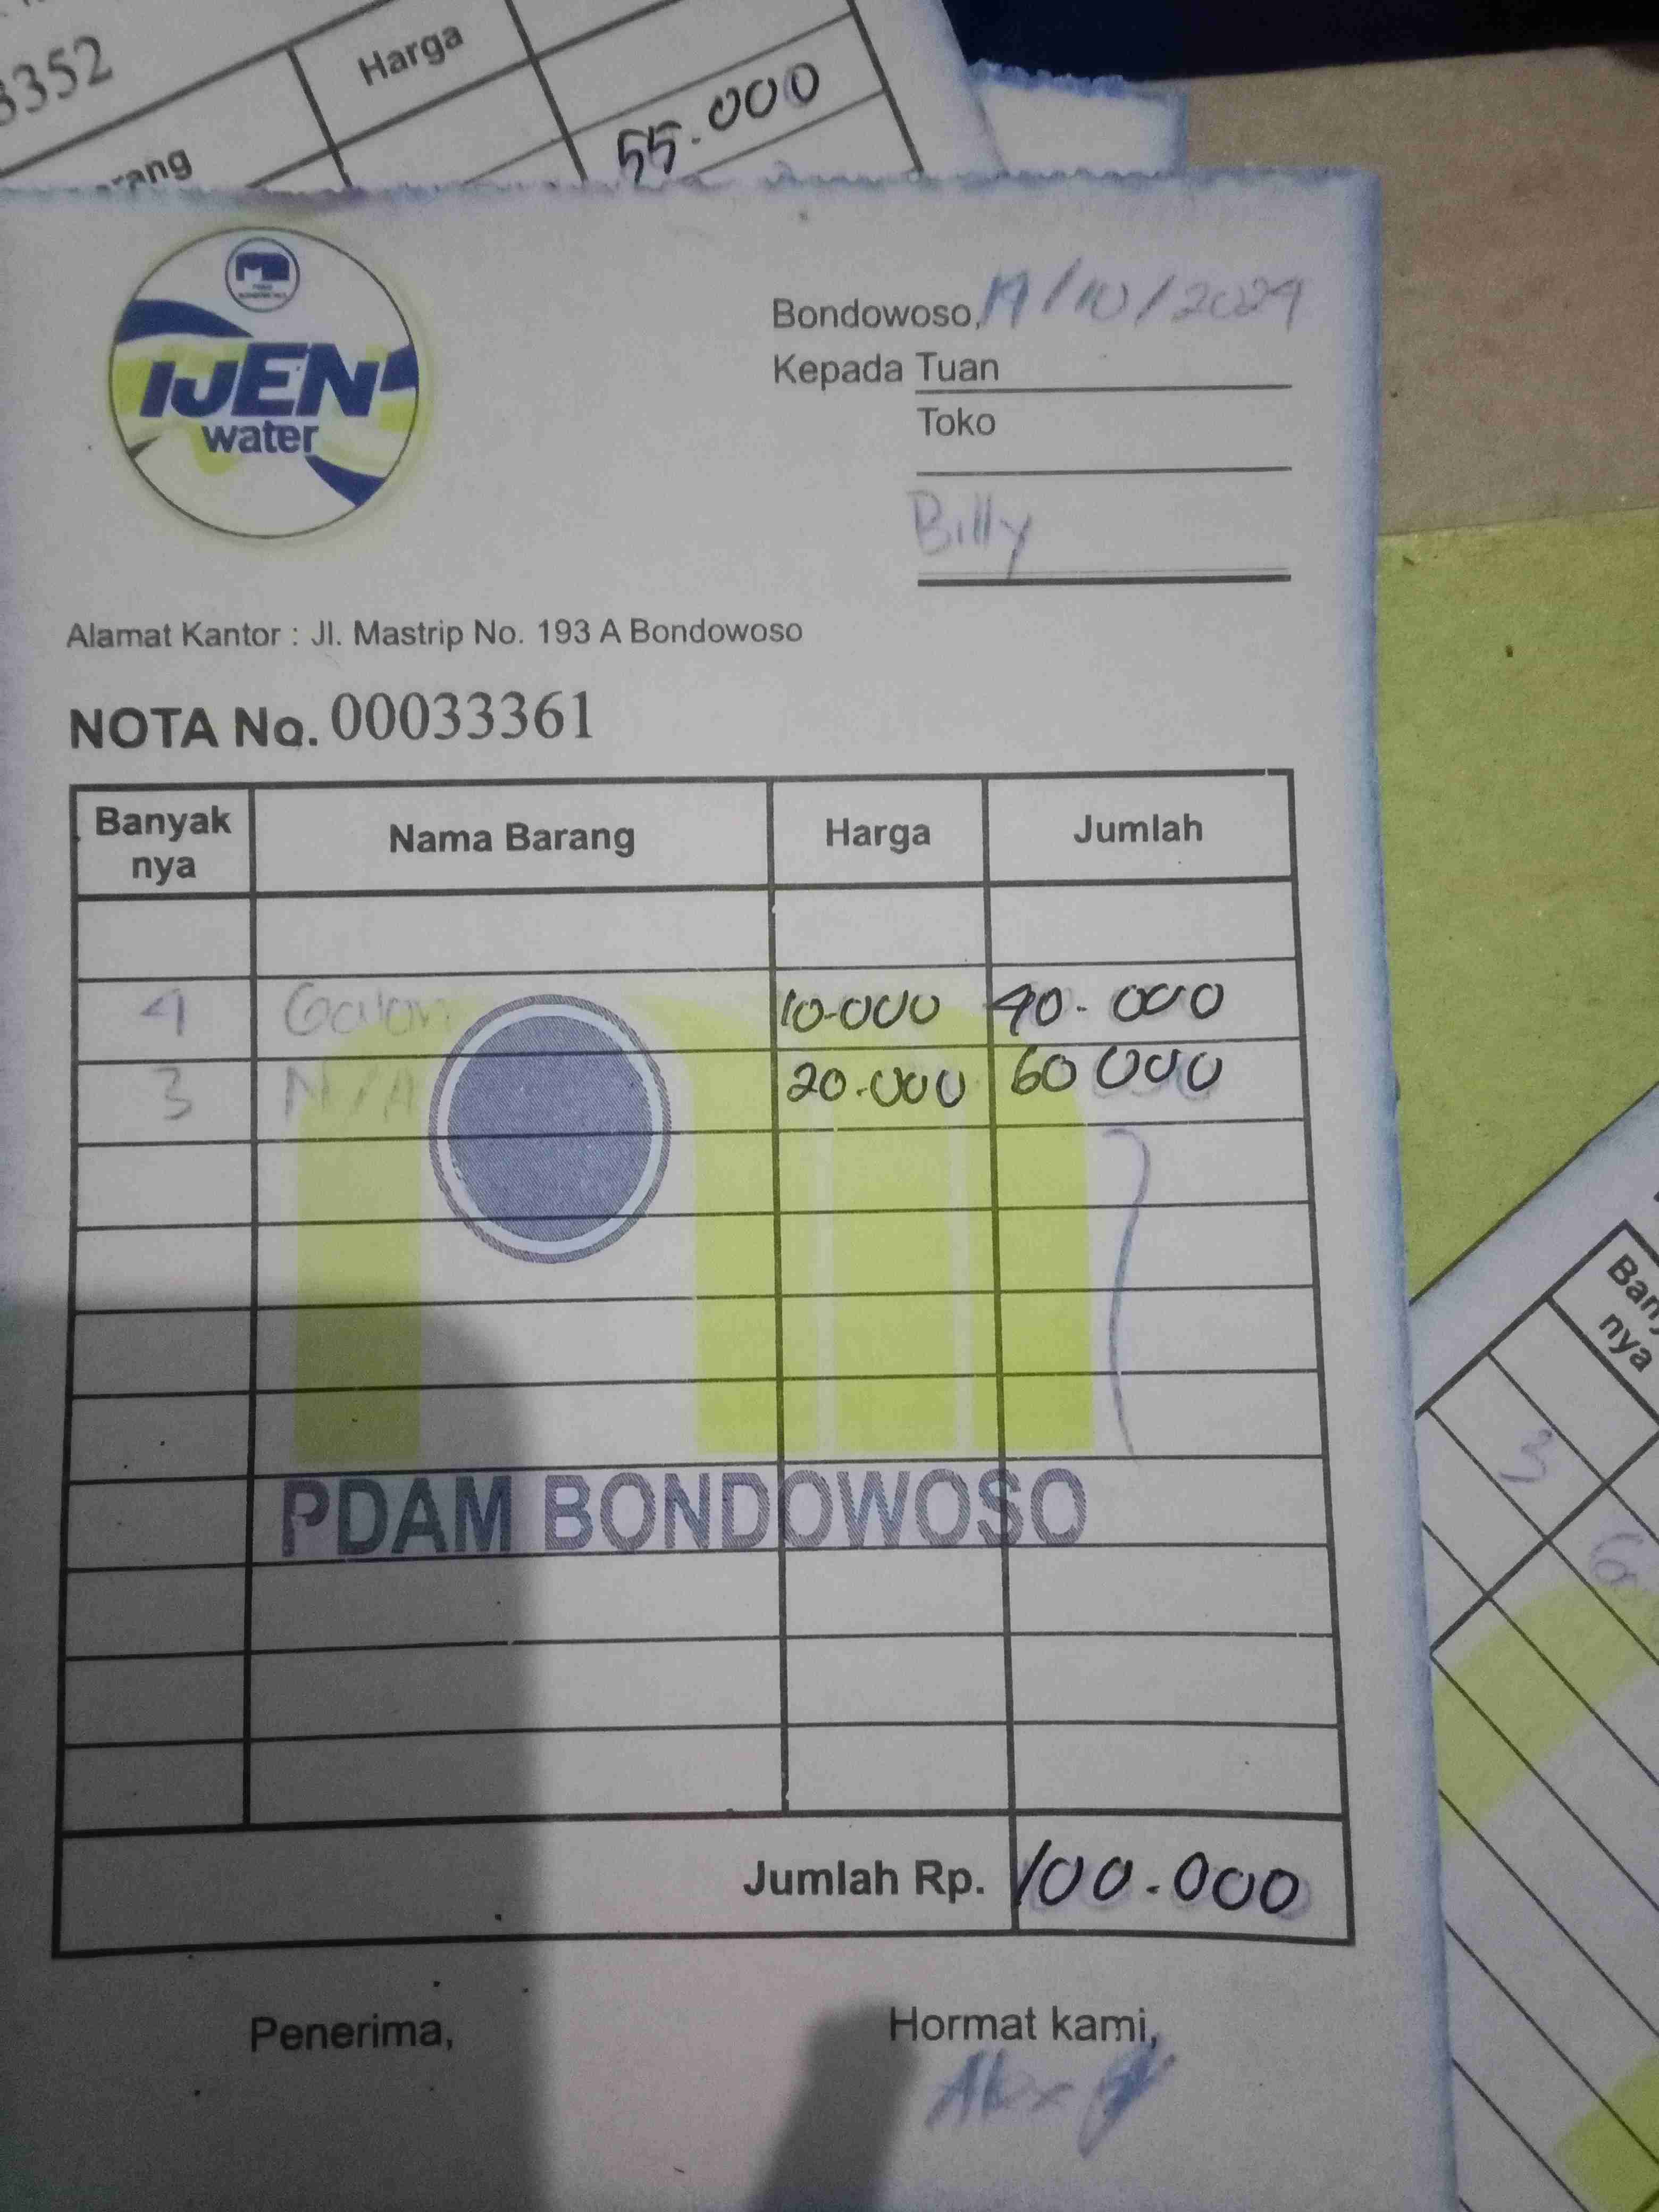 3352
Harga
rang
55.000
IJEN
water
Bondowoso, 19/10/2024
Kepada Tuan
Toko
Billy
Alamat Kantor : Jl. Mastrip No. 193 A Bondowoso
NOTA No. 00033361
Banyak nya Nama Barang Harga Jumlah
4 Galon 10.000 40.000
3 N/A 20.000 60 000
PDAM BONDOWOSO
Jumlah Rp. 100.000
Penerima, Hormat kami,
Alex
Bany
nya
3